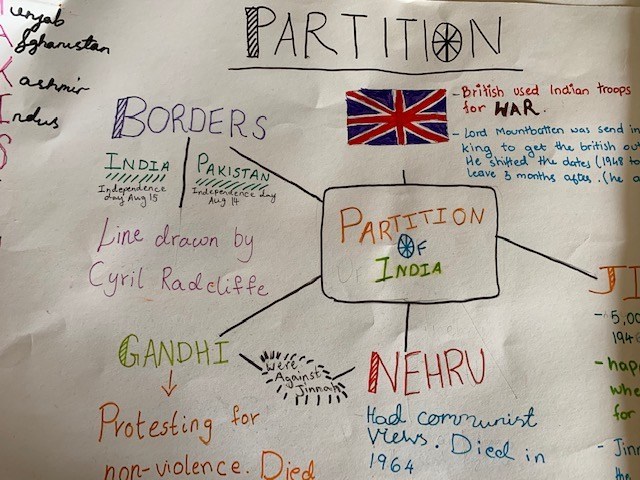 Punjab
Afghanistan
Kashmir
Indus
S
PARTITION
BORDERS
INDIA
Independence
day Aug 15
PAKISTAN
Independence
day Aug 14
Line drawn by
Cyril Radcliffe
- British used Indian troops
for WAR.
- Lord Mountbatten was send in
king to get the british out
He shifted the dates (1948 to
leave 3 months after. (he a
PARTITION
OF
INDIA
GANDHI
Protesting for
non-violence. Died
Were
Against
Jinnah
NEHRU
Had communist
views. Died in
1964
JI
- 5,00
194
- hap
whe
for
- Jinn
the